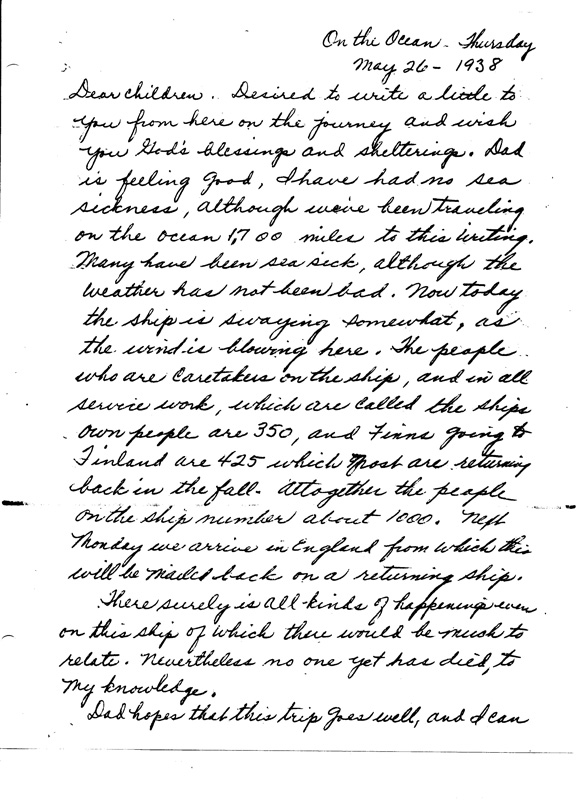 On the Ocean - Thursday
May 26 - 1938
Dear children. Desired to write a little to
you from here on the journey and wish
you God's blessings and shelterings. Dad
is feeling good, I have had no sea
sickness, although we've been traveling
on the ocean 1,700 miles to this writing.
Many have been sea sick, although the
weather has not been bad. Now today
the ship is swaying somewhat, as
the wind is blowing here. The people
who are caretakers on the ship, and in all
service work, which are called the ships
own people are 350, and Finns going to
Finland are 425 which most are returning
back in the fall. Altogether the people
on the ship number about 1000. Next
Monday we arrive in England from which this
will be mailed back on a returning ship.
There surely is all-kinds of happenings even
on this ship of which there would be much to
relate. Nevertheless no one yet has died, to
my knowledge.
Dad hopes that this trip goes well, and I can